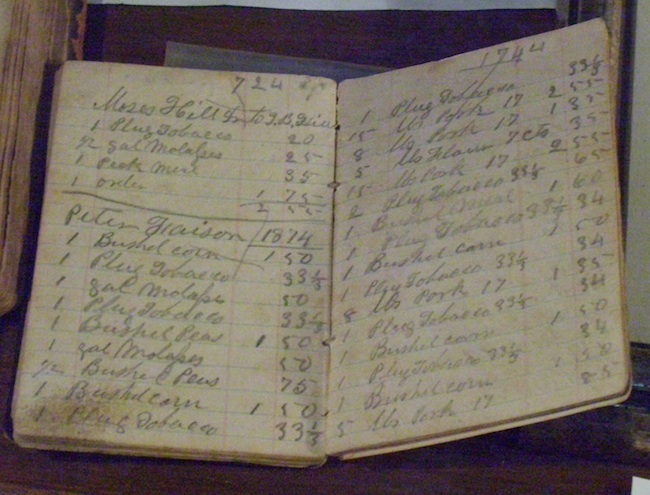 724
Moses Hill In to I.B.
1 Plug Tobacco 20
1/2 gal Molases 25
1 Peck Meal 35
1 order 1 75
2 55
Peter Faison 1874
1 Bushel corn 1 50
1 Plug Tobacco 33 1/3
1 gal Molases 50
1 Plug Tobacco 33 1/3
1 Bushel Peas 1 50
1 gal Molases 50
1/2 Bushel Peas 75
1 Bushel corn 1 50
1 Plug Tobacco 33 1/3
1744
1 Plug Tobacco 33 1/3
15 lbs Pork 17 2 55
8 lbs Pork 17 1 35
5 lbs Flour 7 cts 35
15 lbs Pork 17 2 55
2 Plug Tobacco 33 1/3 65
1 Bushel 1 60
1 Plug Tobacco 33 1/3 34
1 Bushel corn 1 50
1 Plug Tobacco 33 1/3 34
8 lbs Pork 17 1 35
1 Plug Tobacco 33 1/3 34
1 Bushel corn 1 50
1 Plug Tobacco 33 1/3 34
1 Bushel corn 1 50
5 lbs Pork 17 85